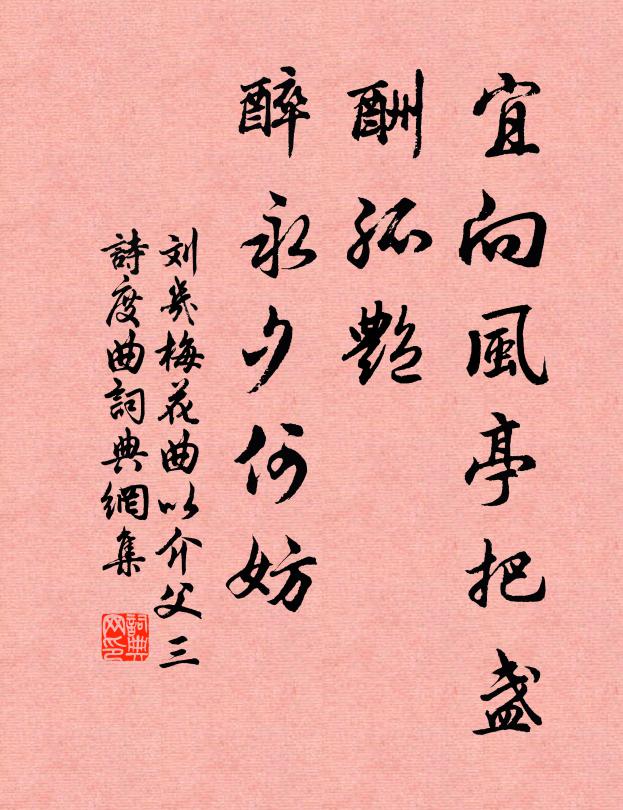 宜向風亭把盞
酬孤艷
醉永夕何妨
刘幾梅花曲以介父三
詩度曲詞典網集
詞典网印